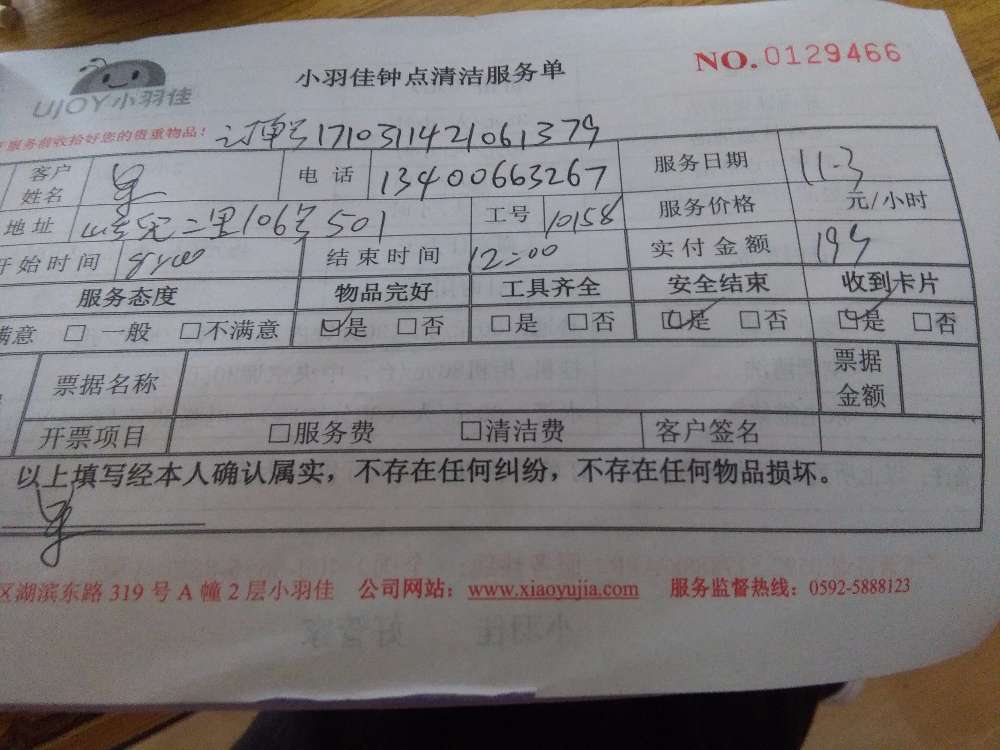 UJOY小羽佳
小羽佳钟点清洁服务单
NO.0129466
服务前收拾好您的贵重物品！
订单号1710311421061379
客户姓名 电话 13400663267 服务日期 11-3
地址 二里106号501 工号 10158 服务价格 元/小时
开始时间 结束时间 12:00 实付金额
服务态度 物品完好 工具齐全 安全结束 收到卡片
满意 □ 一般 □不满意 ☑是 □否 □是 □否 ☑是 □否 ☑是 □否
票据名称 票据金额
开票项目 □服务费 □清洁费 客户签名
以上填写经本人确认属实，不存在任何纠纷，不存在任何物品损坏。
区湖滨东路 319 号 A 幢 2 层小羽佳 公司网站：www.xiaoyujia.com 服务监督热线：0592-5888123